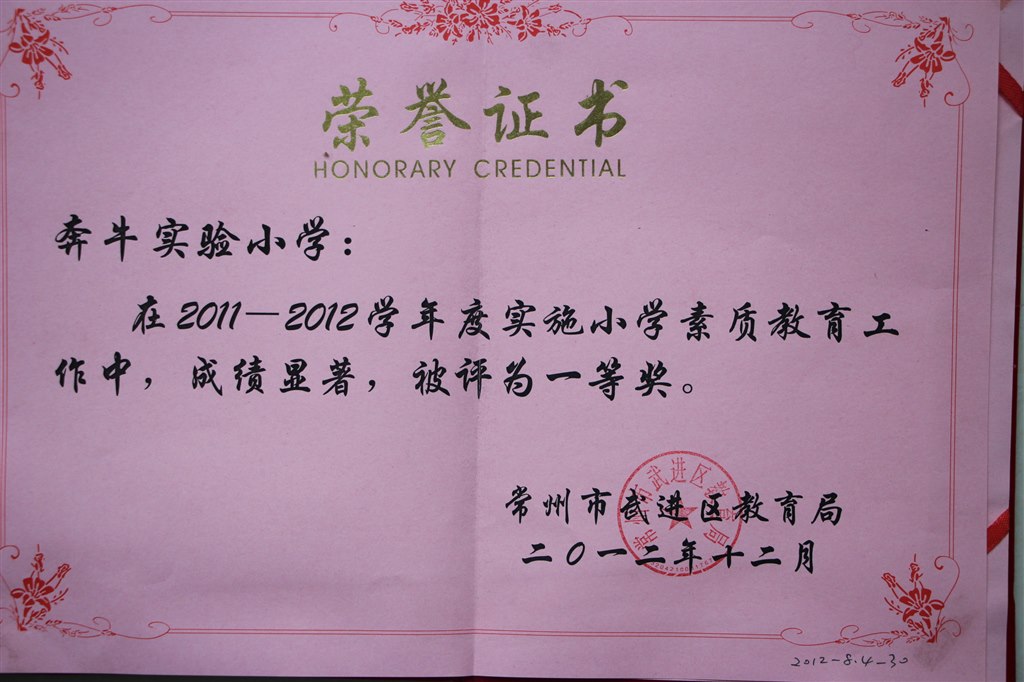 荣誉证书
HONORARY CREDENTIAL
奔牛实验小学：
在2011—2012学年度实施小学素质教育工
作中，成绩显著，被评为一等奖。
常州市武进区教育局
常州市武进区教育局
二〇一二年十二月
2012-8.4-30